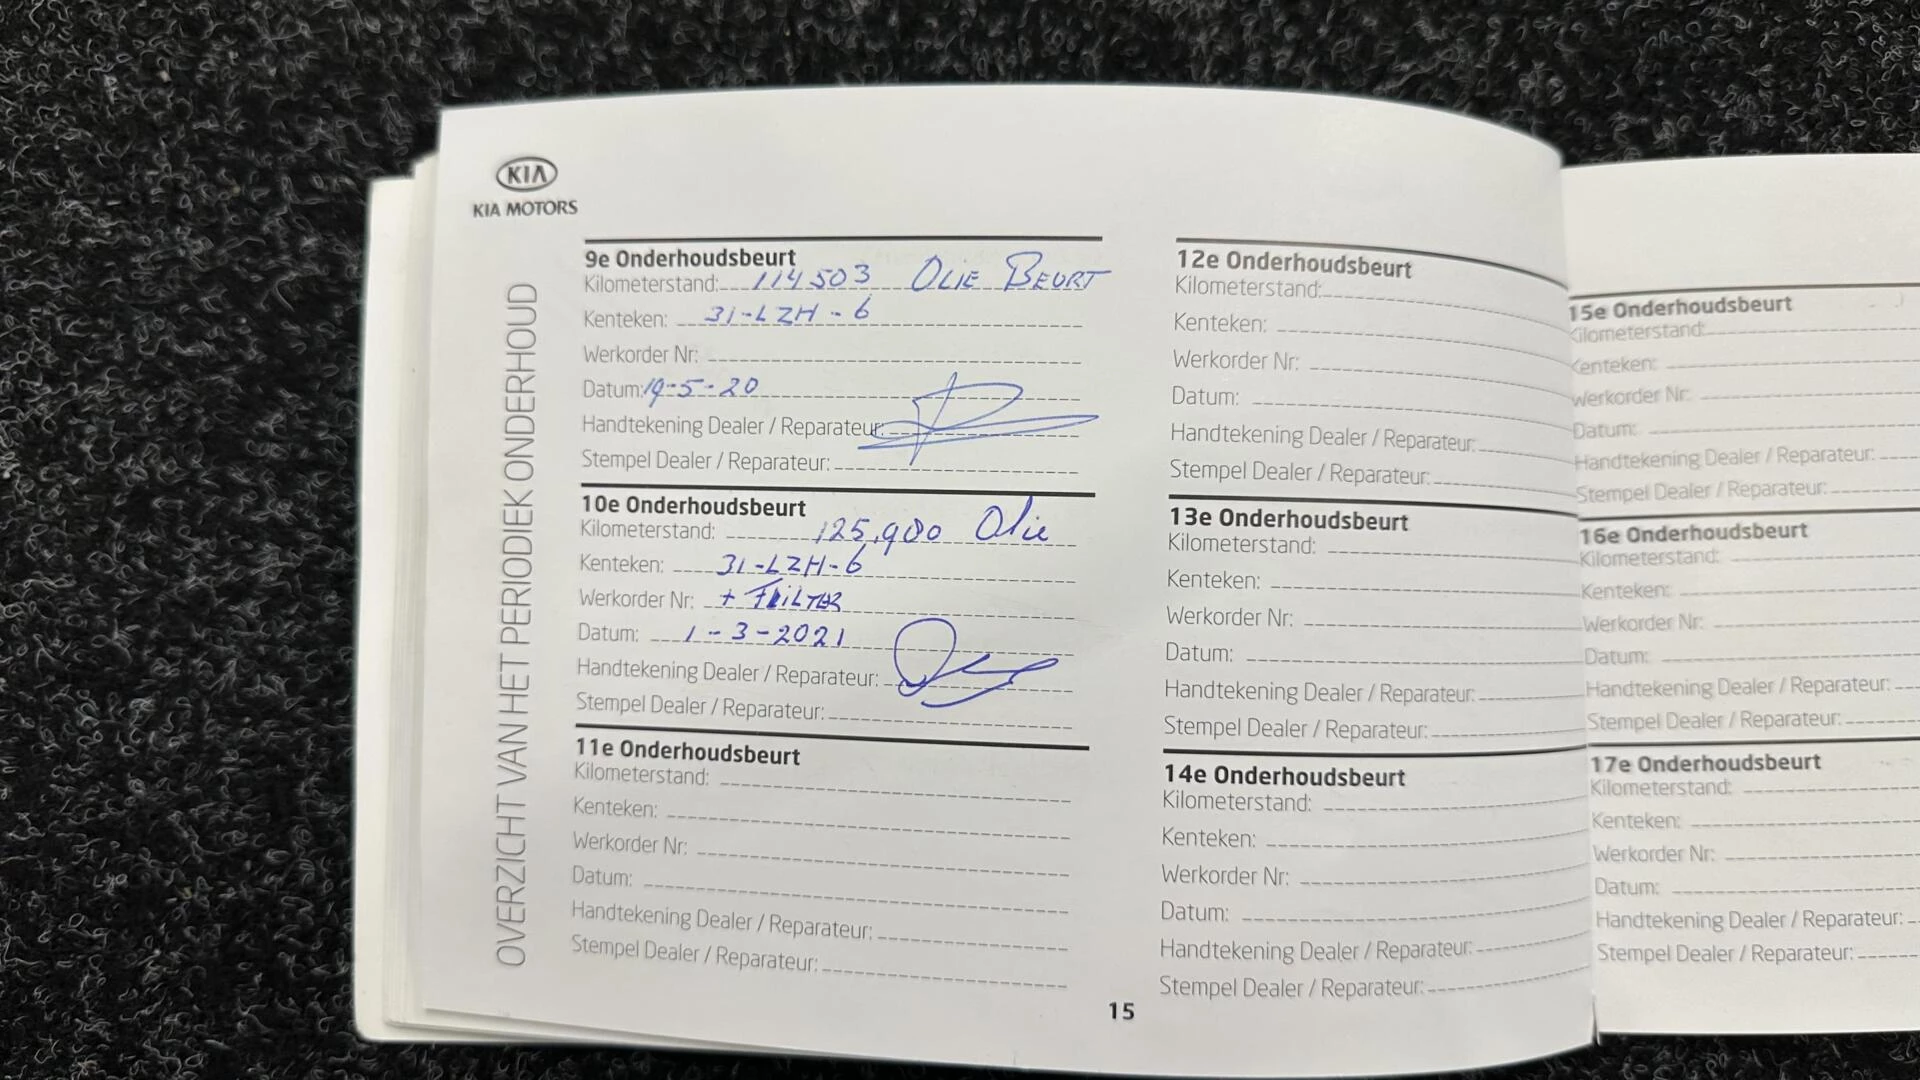 KIA
KIA MOTORS
OVERZICHT VAN HET PERIODIEK ONDERHOUD
9e Onderhoudsbeurt
Kilometerstand: 114503 OLIE BEURT
Kenteken: 31-LZH-6
Werkorder Nr:
Datum: 19-5-20
Handtekening Dealer / Reparateur:
Stempel Dealer / Reparateur:
10e Onderhoudsbeurt
Kilometerstand: 125.900 Olie
Kenteken: 31-LZH-6
Werkorder Nr: +
Datum: 1-3-2021
Handtekening Dealer / Reparateur:
Stempel Dealer / Reparateur:
11e Onderhoudsbeurt
Kilometerstand:
Kenteken:
Werkorder Nr:
Datum:
Handtekening Dealer / Reparateur:
Stempel Dealer / Reparateur:
12e Onderhoudsbeurt
Kilometerstand:
Kenteken:
Werkorder Nr:
Datum:
Handtekening Dealer / Reparateur:
Stempel Dealer / Reparateur:
13e Onderhoudsbeurt
Kilometerstand:
Kenteken:
Werkorder Nr:
Datum:
Handtekening Dealer / Reparateur:
Stempel Dealer / Reparateur:
14e Onderhoudsbeurt
Kilometerstand:
Kenteken:
Werkorder Nr:
Datum:
Handtekening Dealer / Reparateur:
Stempel Dealer / Reparateur:
15
15e Onderhoudsbeurt
Kilometerstand:
Kenteken:
Werkorder Nr:
Datum:
Handtekening Dealer / Reparateur:
Stempel Dealer / Reparateur:
16e Onderhoudsbeurt
Kilometerstand:
Kenteken:
Werkorder Nr:
Datum:
Handtekening Dealer / Reparateur:
Stempel Dealer / Reparateur:
17e Onderhoudsbeurt
Kilometerstand:
Kenteken:
Werkorder Nr:
Datum:
Handtekening Dealer / Reparateur:
Stempel Dealer / Reparateur: